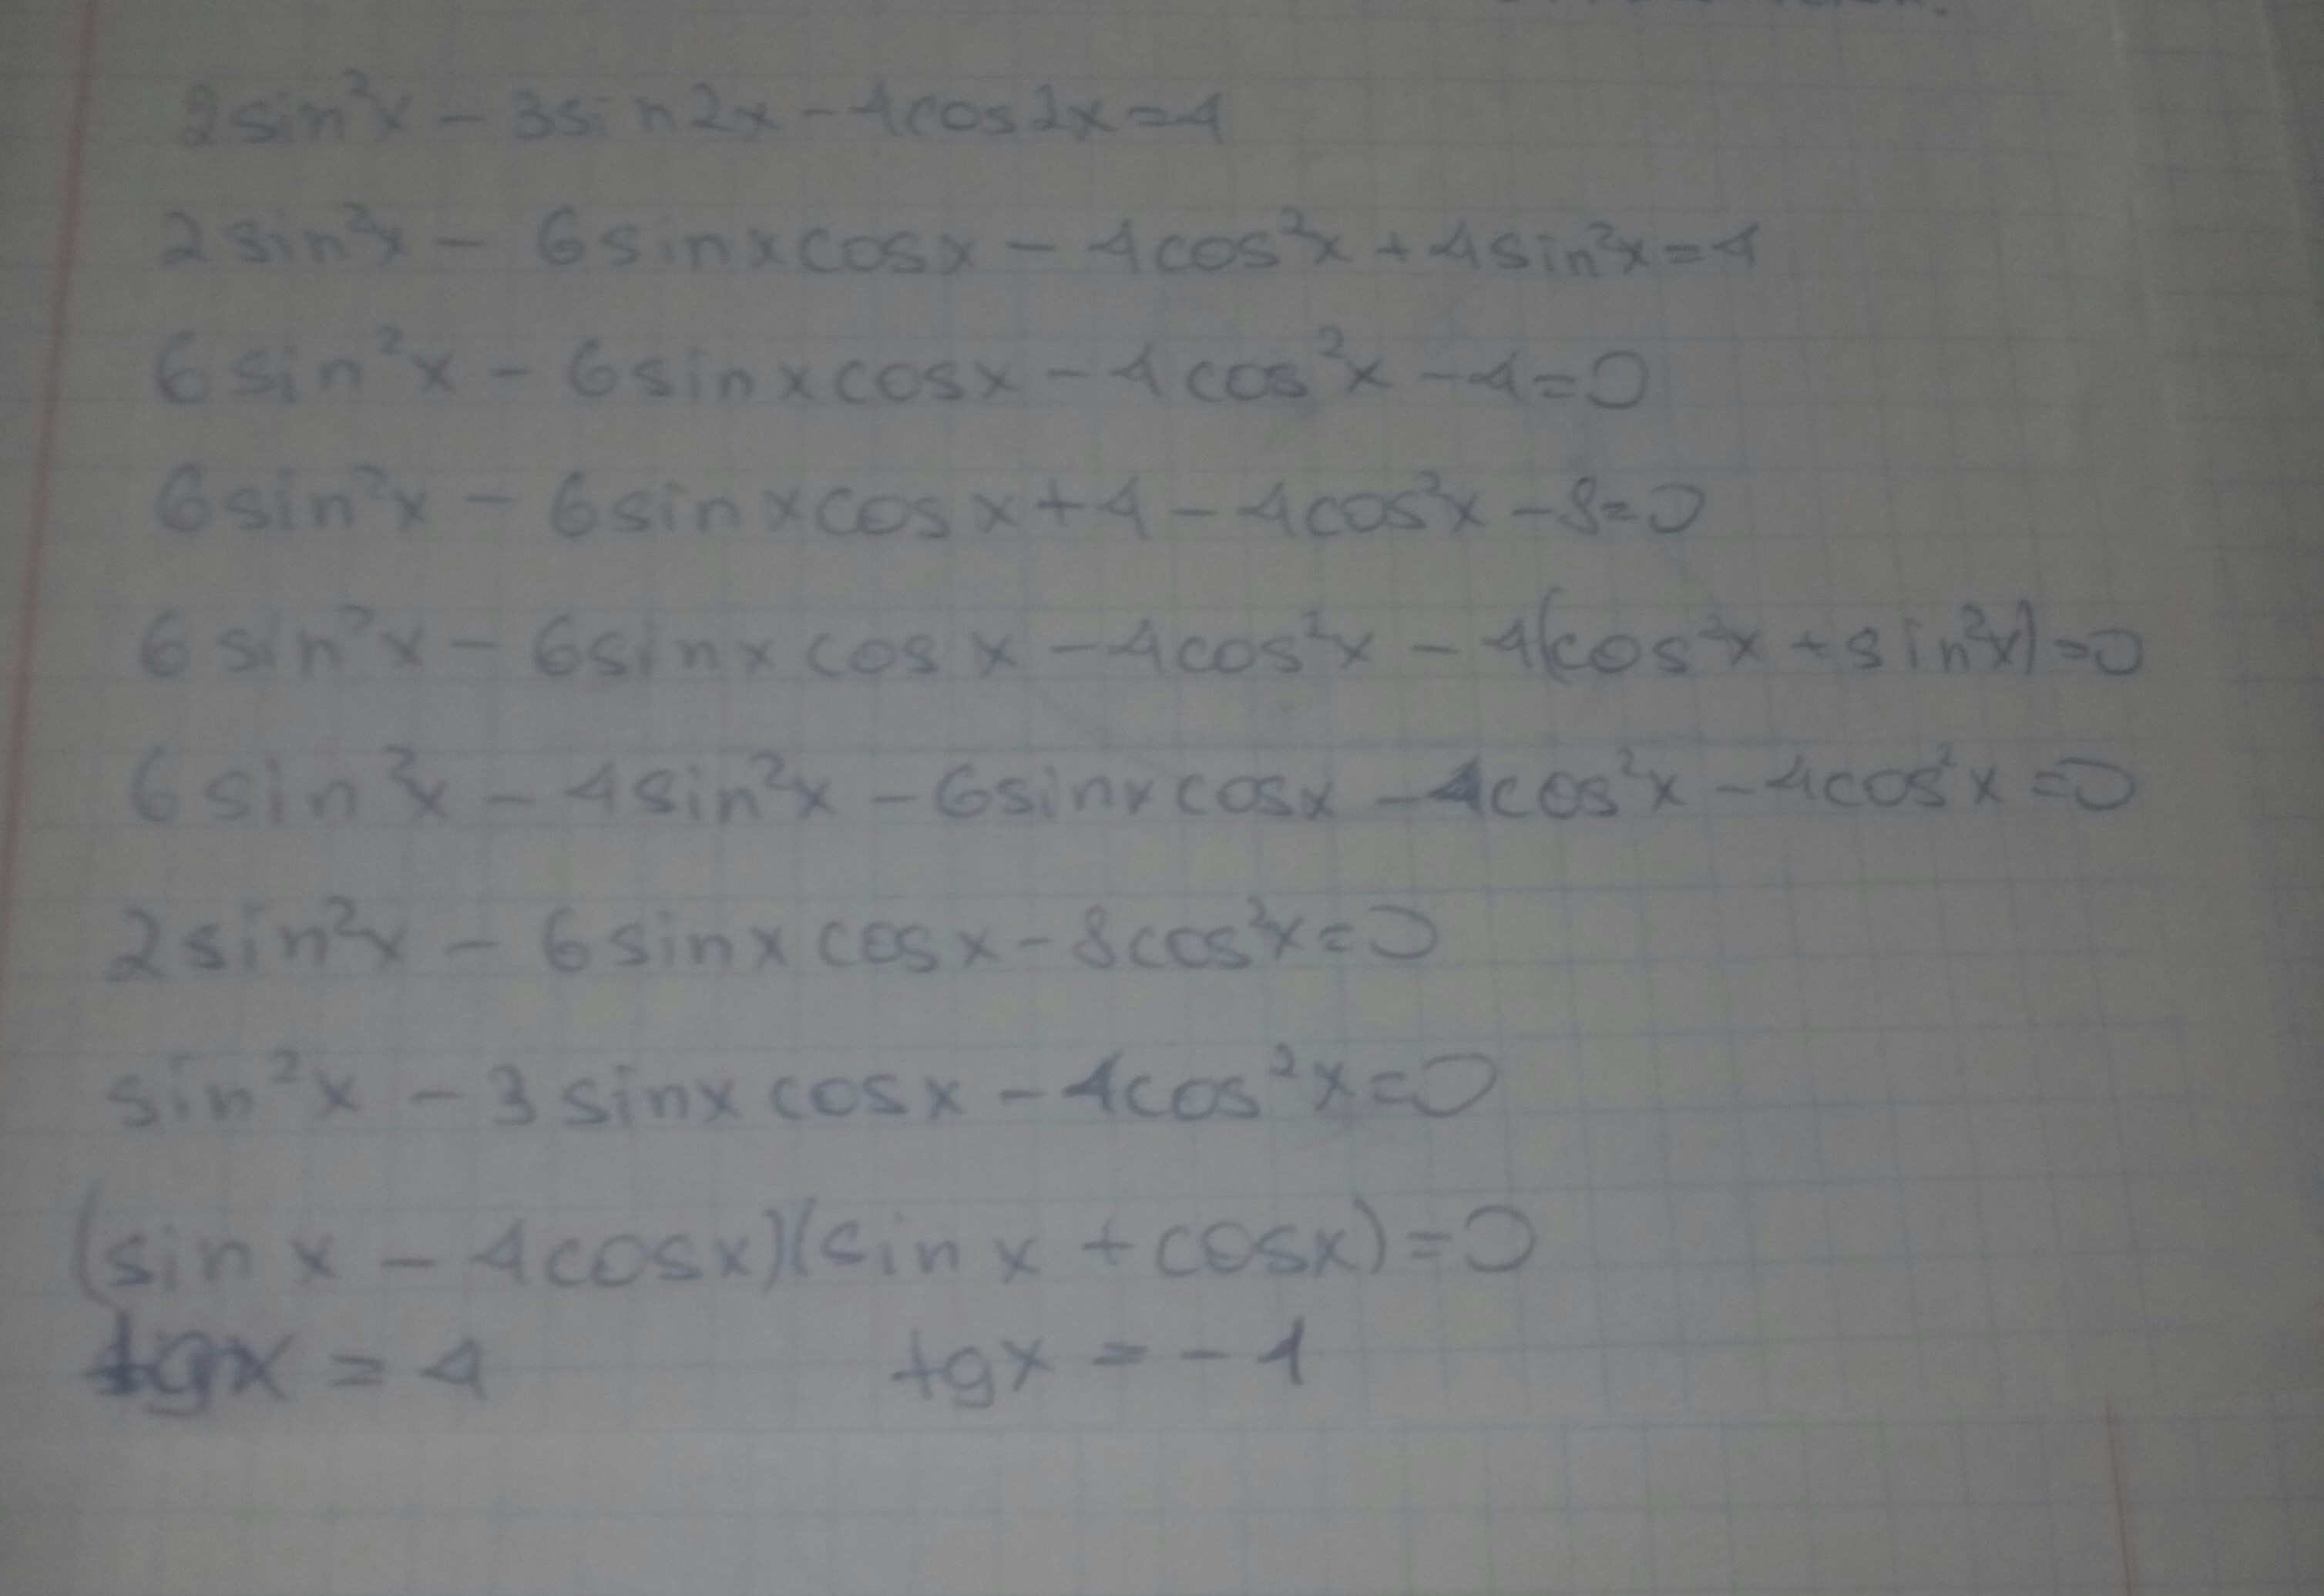 2sin²x - 3sin2x - 4cos2x = 4
2sin²x - 6sinxcosx - 4cos²x + 4sin²x = 4
6sin²x - 6sinxcosx - 4cos²x - 4 = 0
6sin²x - 6sinxcosx + 4 - 4cos²x - 8 = 0
6sin²x - 6sinxcosx - 4cos²x - 4(cos²x + sin²x) = 0
6sin²x - 4sin²x - 6sinxcosx - 4cos²x - 4cos²x = 0
2sin²x - 6sinxcosx - 8cos²x = 0
sin²x - 3sinxcosx - 4cos²x = 0
(sinx - 4cosx)(sinx + cosx) = 0
tgx = 4 tgx = -1